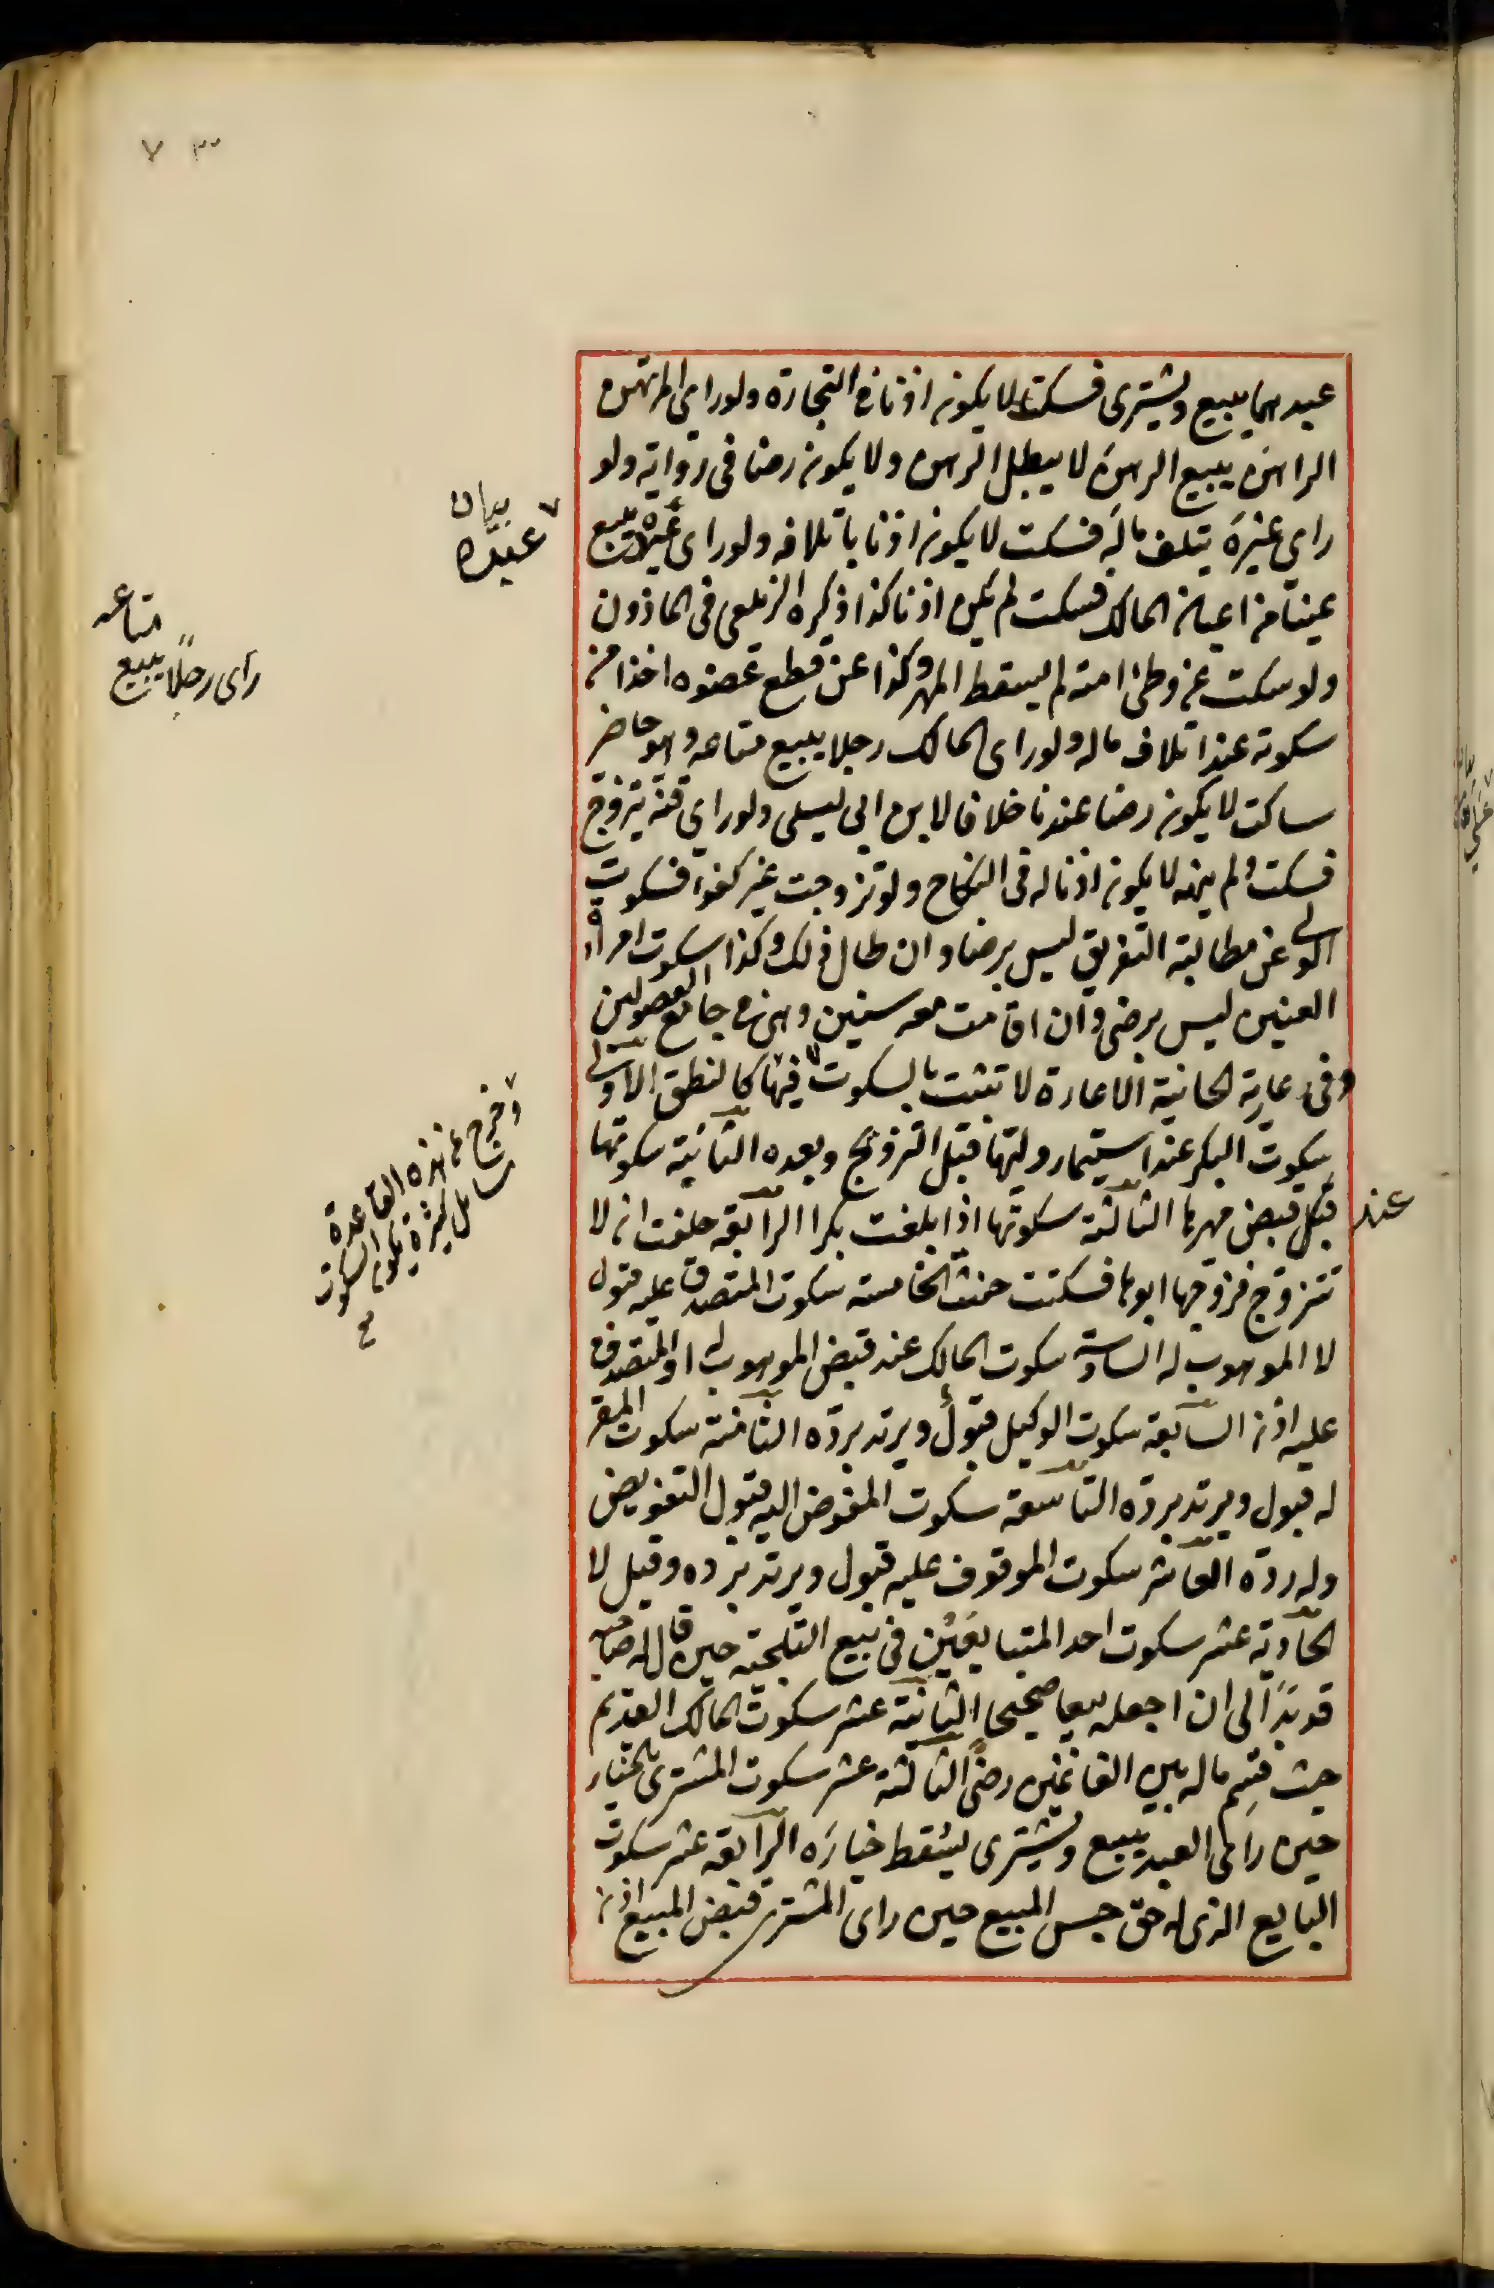 عبدهما يبيع ويشترى فسكت لا يكون اذنا فى التجارة ولو راى المرتهن
الراهن يبيع الرهن لا يبطل الرهن ولا يكون رضا فى رواية ولو
راى غيره يتلف ماله فسكت لا يكون اذنا باتلافه ولو راى غيره يبيع
عينا من اعيان المالك فسكت لم يكن اذنا كذا ذكره الزيلعى فى الماذون
ولو سكت عن وطئ امته لم يسقط المهر وكذا عن قطع عضوه اخذا من
سكوته عند اتلاف ماله ولو راى المالك رجلا يبيع متاعه وهو حاضر
ساكت لا يكون رضا عندنا خلافا لابن ابى ليلى ولو راى قنه يتزوج
فسكت ولم ينهه لا يكون اذنا له فى النكاح ولو تزوجت غير كفوء فسكوت
الولى عن مطالبة التفريق ليس برضا وان طال ذلك وكذا سكوت امرأة
العنين ليس برضى وان اقامت معه سنين وهى فى جامع الفصولين
وفى عارية الخانية الاعارة لا تثبت بالسكوت فيها كالنطق الاولى
سكوت البكر عند استيمار وليها قبل التزويج وبعده الثانية سكوتها
قبل قبض مهرها الثالثة سكوتها اذا بلغت بكرا الرابعة حلفت ان لا
تتزوج فزوجها ابوها فسكتت حنثت الخامسة سكوت المتصدق عليه قبول
لا الموهوب له السادسة سكوت المالك عند قبض الموهوب له او المتصدق
عليه اذن السابعة سكوت الوكيل قبول ويرتد برده الثامنة سكوت المقر
له قبول ويرتد برده التاسعة سكوت المفوض اليه قبول التفويض
وله رده العاشر سكوت الموقوف عليه قبول ويرتد برده وقيل لا
الحادية عشر سكوت احد المتبايعين فى بيع التلجئة حين قال له صاحبه
قد بدا لى ان اجعله بيعا صحيحا الثانية عشر سكوت المالك القديم
حيث قسم ماله بين الغانمين رضى الثالثة عشر سكوت المشترى بالخيار
حين راى العبد يبيع ويشترى يسقط خياره الرابعة عشر سكوت
البايع الذى له حق حبس المبيع حين راى المشترى قبض المبيع اذن
بيان
عبده
متاعه
راى رجلا يبيع
وخرج عن هذه القاعدة
مسائل كثيرة يكون السكوت
عند